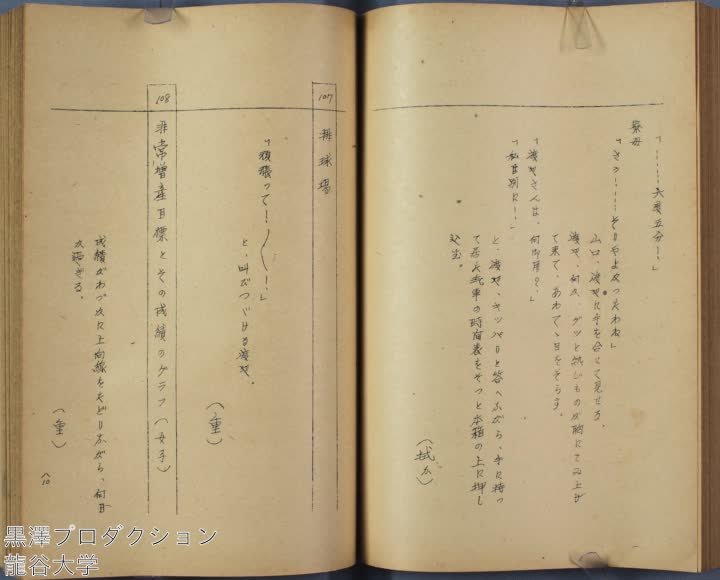 「……六度五分！」
寮母
「さう……そりやよかつたわね」
山口、渡辺に手を合せて見せる。
渡辺、何か、グツと熱いものが胸にこみ上げ
て来て、あわてゝ目をそらす。
「渡辺さんは、何御用？」
「私は別に！」
と、渡辺、キツパリと答へながら、手に持つ
て居た汽車の時間表をそつと本箱の上に押し
込む。
（拭太）
107 排球場
「頑張つて！／＼！」
と、叫びつゞける渡辺。
（重）
108 非常増産目標とその成績のグラフ（女子）
成績がわづかに上向線をたどりながら、何日
か過ぎる。
（重）
八10
黒澤プロダクション
龍谷大学